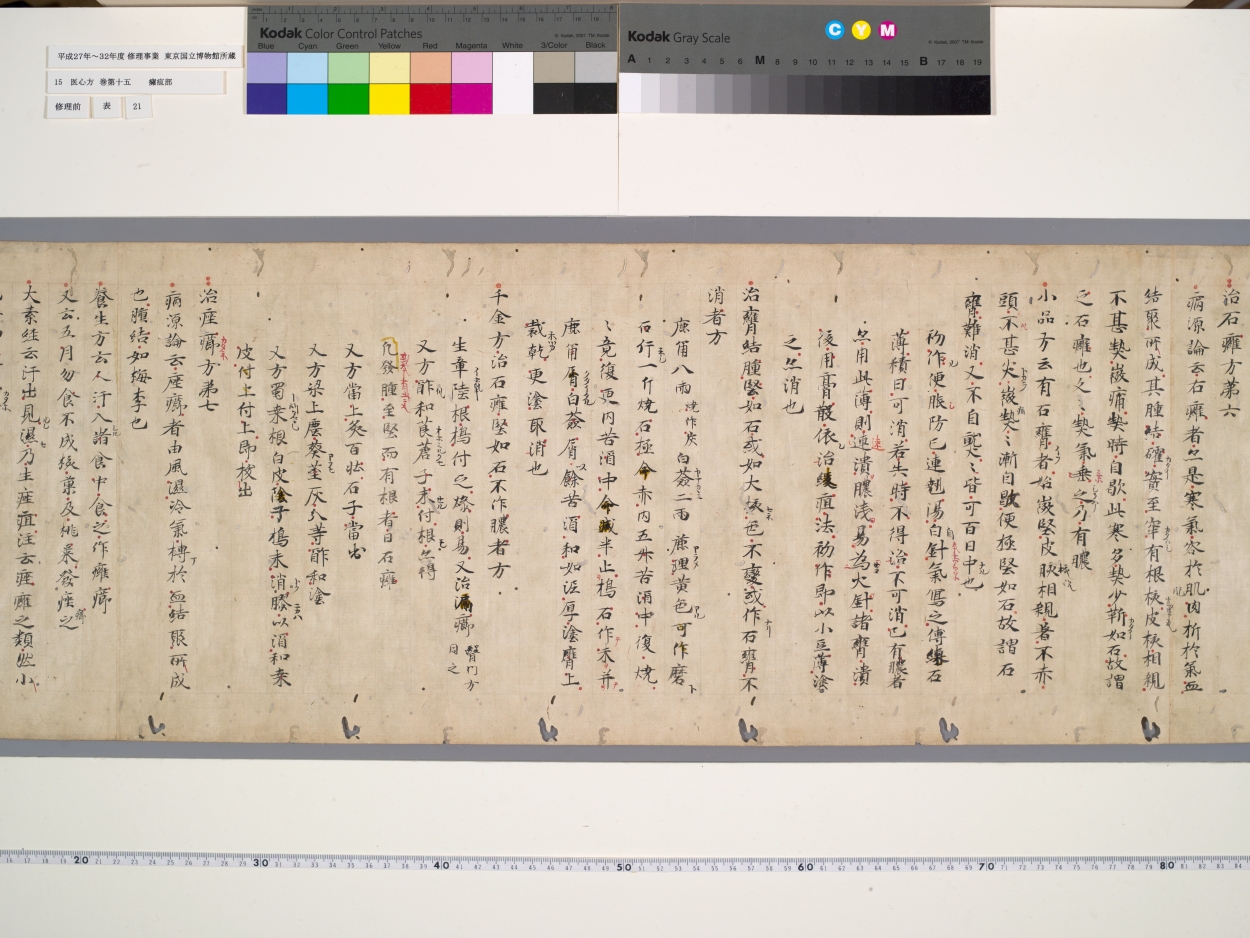 平成27年～32年度 修理事業 東京国立博物館所蔵
15 医心方 巻第十五 癰疽部
修理前 表 21
Kodak Color Control Patches
Blue Cyan Green Yellow Red Magenta White 3/Color Black
Kodak Gray Scale
C Y M
A 1 2 3 4 5 6 M 8 9 10 11 12 13 14 15 B 17 18 19
治石癰方第六
病源論云石癰者亦是寒氣客於肌肉折於氣血
結聚所成其腫結確實至牢有根核皮核相親
不甚熱微痛熱時自歇此寒多熱少靳如石故謂
之石癰也
小品方云有石癰者始微堅皮核相親著不赤
頭不甚尖微熱々漸自歇便極堅如石故謂石
癰難消又不自熟々皆可百日中也
初作便服防己連翹湯白針氣寫之傅練石
薄積日可消若失時不得治不可消已有膿者
亦用此薄則速潰膿淺易為火針諸癰潰
後用膏散依治緩疽法初作即以小豆薄塗
之亦消也
治癰結腫堅如石或如大核色不變或作石癰不
消者方
鹿角八兩 燒作灰 白蘞二兩 麁理黄色可作磨
石行一斤燒石極令赤内五升苦酒中復燒
々竟復更内苦酒中令減半止搗石作末并
鹿角屑白蘞屑以餘苦酒和如泥厚塗癰上
裁乾更塗取消也
千金方治石癰堅如石不作膿者方
生章陸根搗付之燥則易又治漏癤
又方酢和莨菪子末付根亦得
凡發腫至堅而有根者曰石癰
又方當上灸百壯石子當出
又方梁上塵葵莖灰分等酢和塗
又方蜀菜根白皮陰干搗末消膠以酒和来
皮付上付上即枚出
治痤癤方第七
病源論云痤癤者由風濕冷氣搏於血結聚所成
也腫結如梅李也
養生方云人汗入諸食中食之作癰癤
又云五月勿食不成核菓及桃菜發痤之
大素經云汗出見濕乃生痤疽注云痤癰之類然小
20 30 40 50 60 70 80